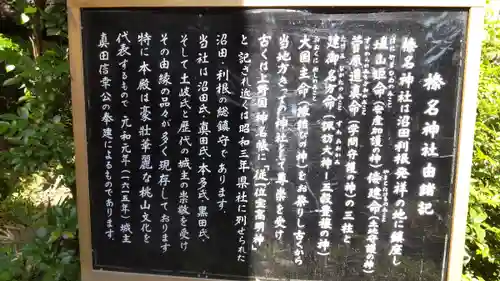 榛名神社由緒記
榛名神社は沼田利根発祥の地に鎮座し
埴山姫命(産加護の神)倭建命
菅原道真命(学問守護の神)の三柱と
建御名方命(諏訪大神―五穀豊穣の神)
大国主命(縁結の神)をお祭りし古くから
古くは上野国神名帳に「従一位宝高明神」
と記され近くは昭和三年県社に列せられた
沼田・利根の総鎮守であります。
当社は沼田氏・真田氏・本多氏・黒田氏・
そして土岐氏と歴代の城主の崇敬を受け
その由緒の品々が多く現存しております
特に本殿は豪壮華麗な桃山文化を
代表するもので 元和元年(一六一五年)城主
真田信幸公の奉建によるものであります。